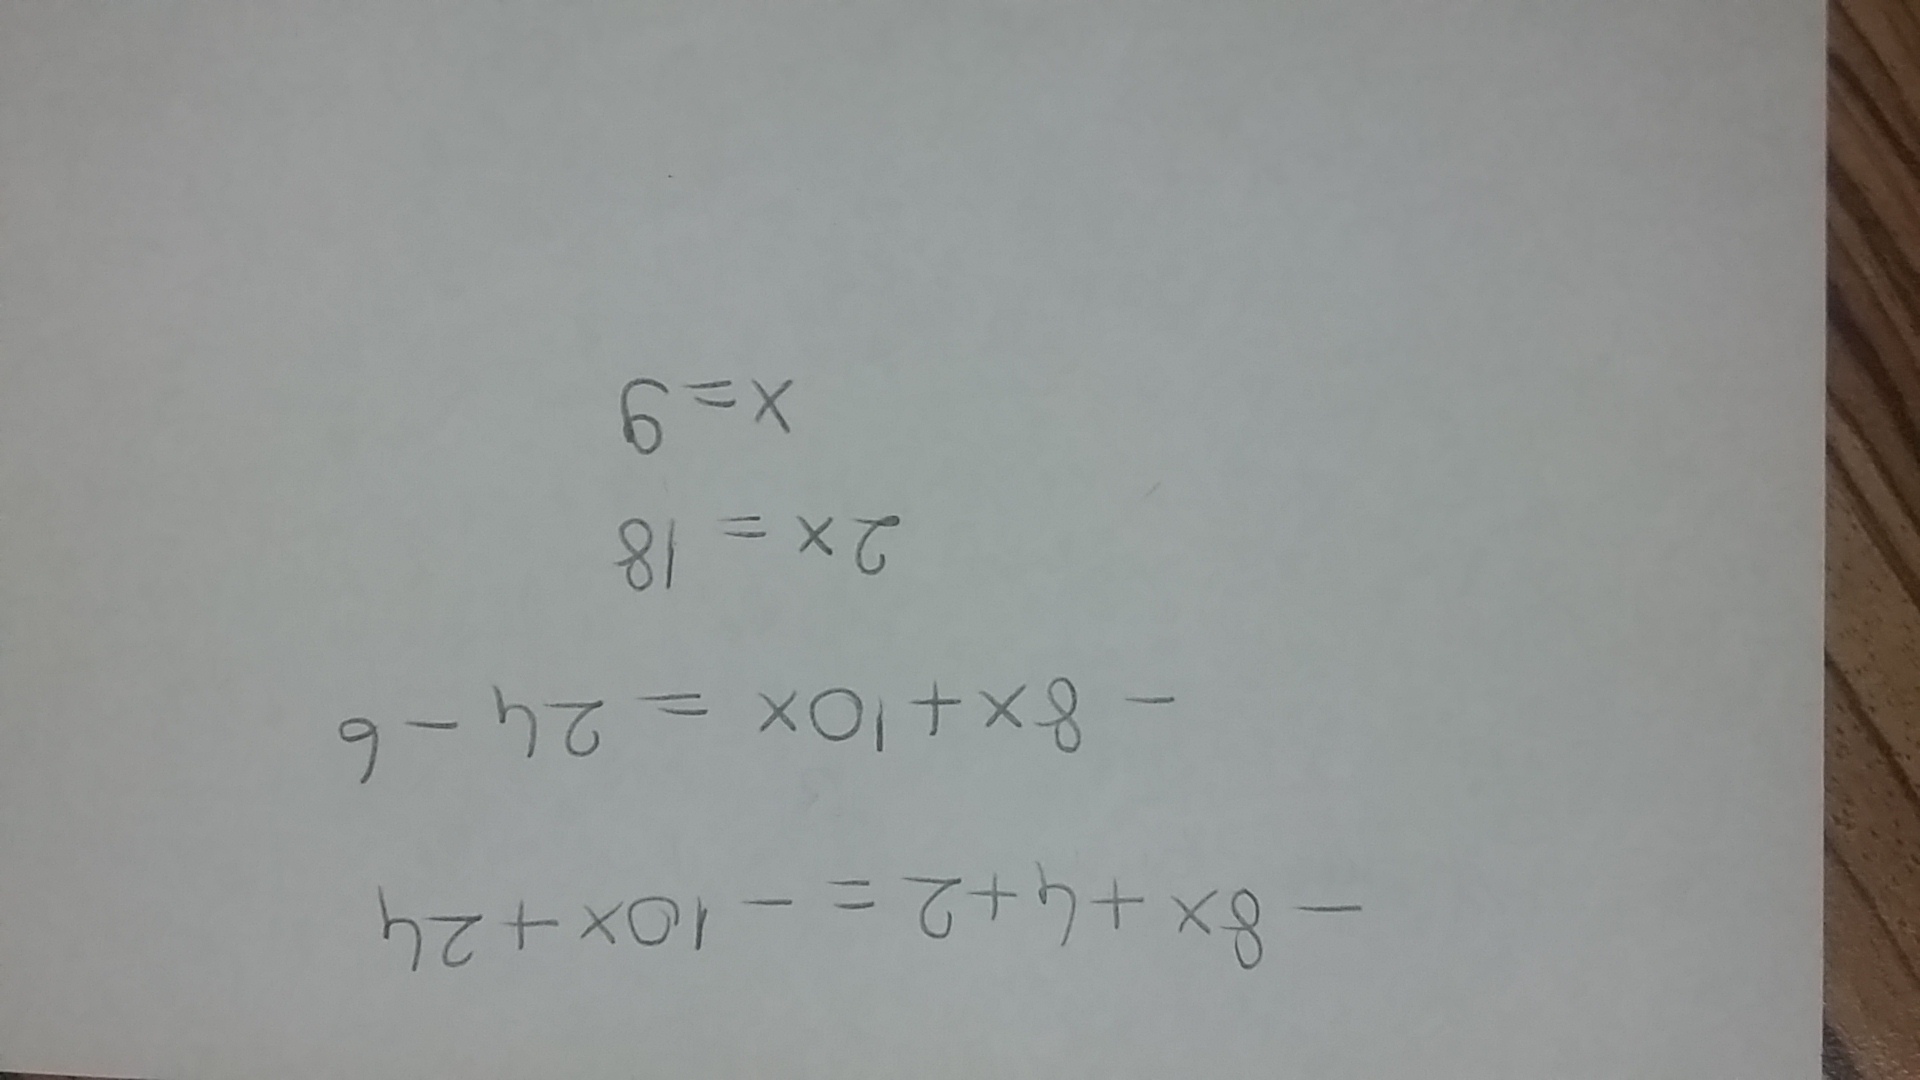 - 8x + 4 + 2 = - 10x + 24
- 8x + 10x = 24 - 6
2x = 18
x = 9